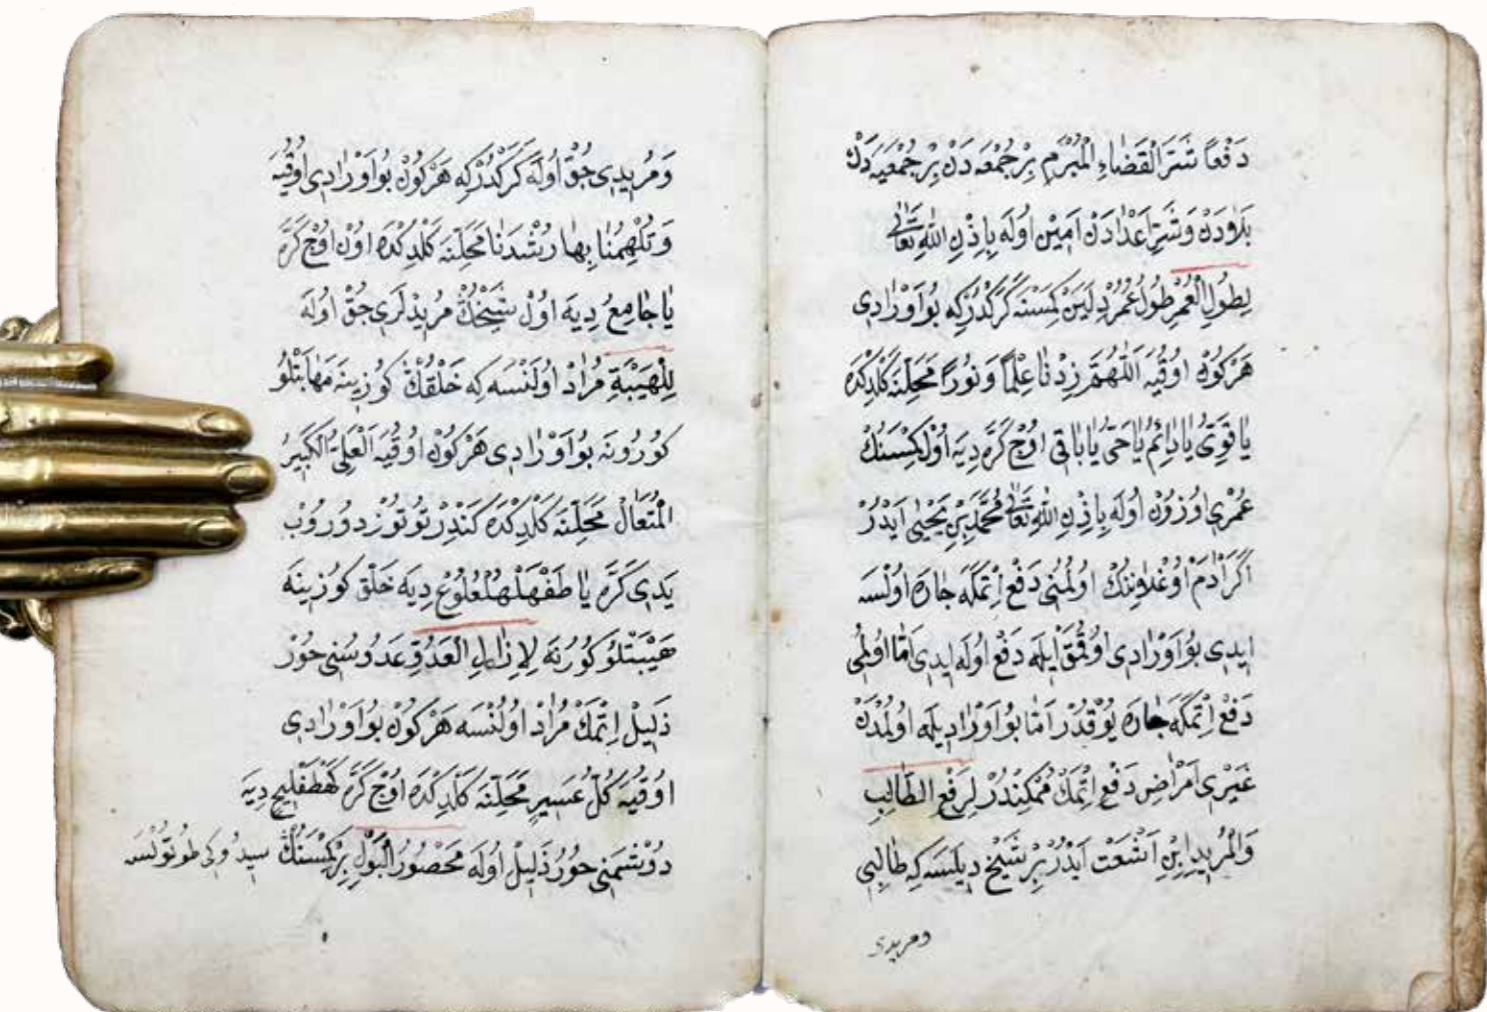 دَفْعًا شَرَّ الْقَضَاءِ الْمُبْرَمِ بِرْ جُمْعَه دَنْ بِرْ جُمْعَيَه دَكْ
بَلَاوْدَنْ وَشَرِّ اَعْدَادَنْ اَمِينْ اُولَه بِاِذْنِ اللّٰهِ تَعَالٰى
لِطُولِ الْعُمْرِ طُولُ عُمُرْ دِلَيَنْ كِمْسَنَه كَرَكْدُرْكِه بُو اَوْرَادِى
هَرْكُونْ اوُقُيَه اَللّٰهُمَّ زِدْنَا عِلْمًا وَنُورًا مَحَلِّنَه كَلْدِكْدَه
يَا قَوِىُّ يَا دَائِمُ يَا حَىُّ يَا بَاقِى اوُچْ كَرَّه دِيَه اوُلْ كِمْسَنَنُكْ
عُمْرِى اوُزوُنْ اوُلَه بِاِذْنِ اللّٰهِ تَعَالٰى مُحَمَّدِ بْنِ يَحْيٰى اَيْدُرْ
اَكَرْ اٰدَمْ اوُغْلَانِنُكْ اوُلُمُنِى دَفْعْ اِتْمَكَه چَارَه اوُلْسَه
ايدِى بُو اَوْرَادِى اوُقُمَقْ اَيْلَه دَفْعْ اوُلَه ايدِى اَمَّا اوُلُمِى
دَفْعْ اِتْمَكَه چَارَه يُوقْدُرْ اَمَّا بُو اَوْرَادِيلَه اوُلُمْدَنْ
غَيْرِى اَمْرَاضِ دَفْعْ اِتْمَكْ مُمْكِنْدُرْ لِرَفْعِ الطَّالِبِ
وَالْمُرِيدِ اِبْنِ اَشْعَتْ اَيْدُرْ بِرْ شَيْخْ دِيلَسَه كِه طَالِبِى
ومريدى
وَمُرِيدِى چُقْ اوُلَه كَرَكْدُرْكِه هَرْكُونْ بُو اَوْرَادِى اوُقُيَه
وَتُلْهِمُنَا بِهَا رُشْدَنَا مَحَلِّنَه كَلْدِكْدَه اوُنْ اوُچْ كَرَّه
يَا جَامِعُ دِيَه اوُلْ شَيْخُكْ مُرِيدْلَرِى چُقْ اوُلَه
لِلْهَيْبَةِ مُرَادْ اوُلْنْسَه كِه خَلْقُكْ كوُزِينَه مَهَابَتْلُو
كوُرُونَه بُو اَوْرَادِى هَرْكُونْ اوُقُيَه اَلْعَلِىُّ الْكَبِيرُ
الْمُتَعَالْ مَحَلِّنَه كَلْدِكْدَه كَنْدِرْ توُتوُزْدوُرُوبْ
يَدِى كَرَّه يَا طَفْهَلْهُلْعُلُوعْ دِيَه خَلْقْ كوُزِينَه
هَيْبَتْلُو كوُرُنَه لِاِذْلَالِ الْعَدُوِّ عَدُوسُنِى خوُرْ
ذَلِيلْ اِتْمَكْ مُرَادْ اوُلُنْسَه هَرْكُونْ بُو اَوْرَادِى
اوُقُيَه كُلِّ عَسِيرٍ مَحَلِّنَه كَلْدِكْدَه اوُچْ كَرَّه كَهْطَفْلِيچْ دِيَه
دوُشْمَنِى خوُرْ ذَلِيلْ اوُلَه مَحْصُورُ الْبَوْلِ بِرْ كِمْسَنَنُكْ سيدوكى طوتولسه